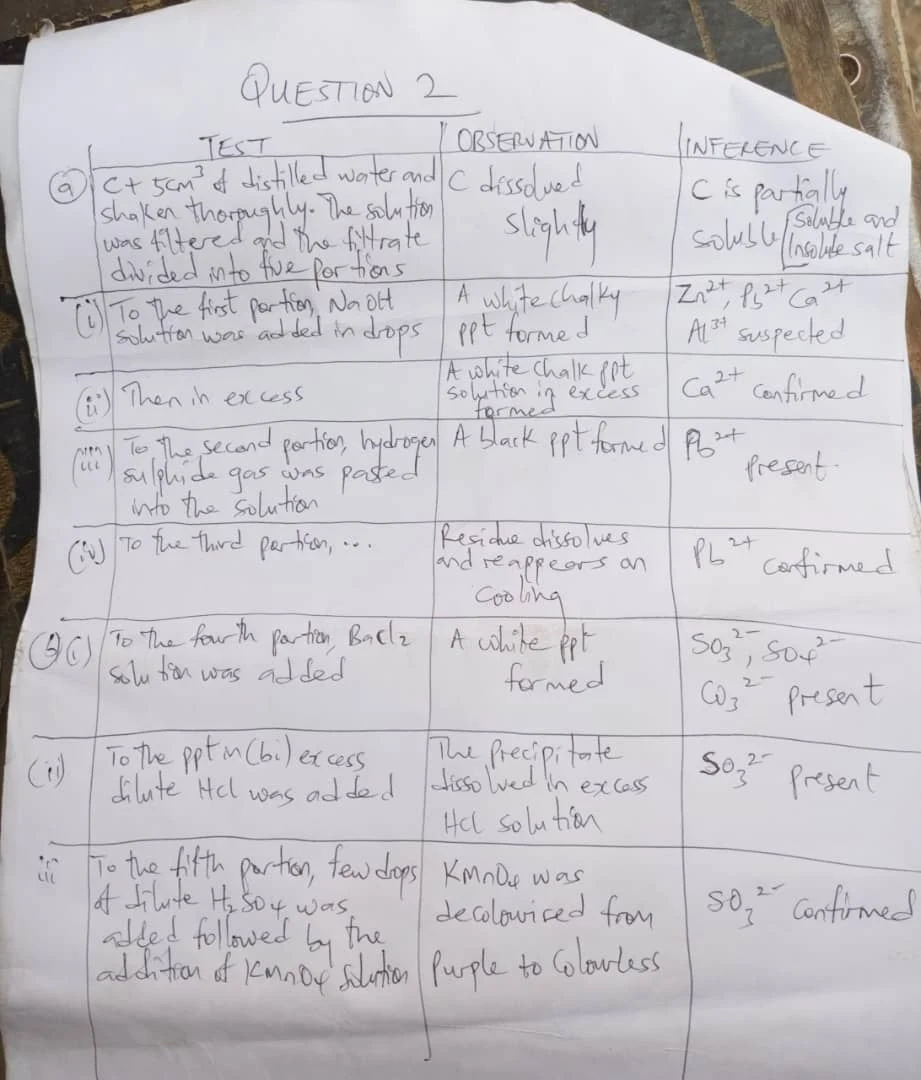 QUESTION 2
TEST
OBSERVATION
INFERENCE
(a)
C + 5cm³ of distilled water and
shaken thoroughly. The solution
was filtered and the filtrate
divided into five portions
C dissolved
slightly
C is partially
soluble
Soluble and
Insoluble salt
(i)
To the first portion, NaOH
solution was added in drops
A white chalky
ppt formed
Zn²⁺, Pb²⁺ Ca²⁺
Al³⁺ suspected
(ii)
Then in excess
A white chalk ppt
solution in excess
formed
Ca²⁺ confirmed
(iii)
To the second portion, hydrogen
sulphide gas was passed
into the solution
A black ppt formed
Pb²⁺
present.
(iv)
To the third portion, ...
Residue dissolves
and reappears on
Cooling
Pb²⁺ confirmed
(b)(i)
To the fourth portion, BaCl₂
solution was added
A white ppt
formed
SO₃²⁻, SO₄²⁻
CO₃²⁻ present
(ii)
To the ppt in (bi) excess
dilute HCl was added
The Precipitate
dissolved in excess
HCl solution
SO₃²⁻ present
iii
To the fifth portion, few drops
of dilute H₂SO₄ was
added followed by the
addition of KMnO₄ solution
KMnO₄ was
decolourised from
Purple to Colourless
SO₃²⁻ confirmed